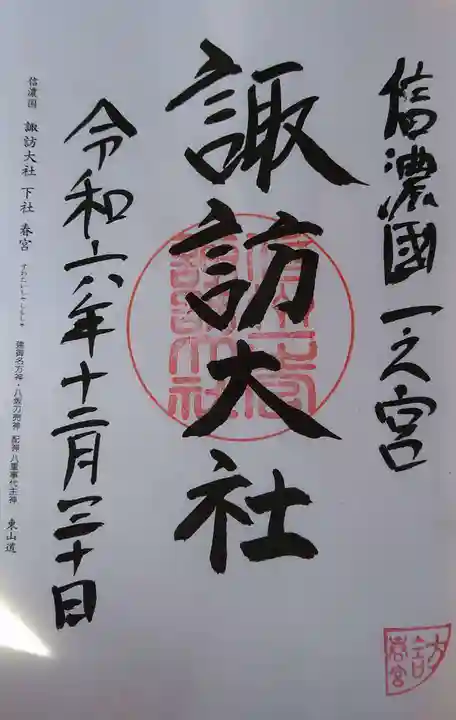 信濃國一之宮
諏訪大社
令和六年十二月三十日
信濃国 諏訪大社 下社 春宮 すわたいしゃしもしゃ 建御名方神・八坂刀売神 配神 八重事代主神 東山道
諏訪
春宮